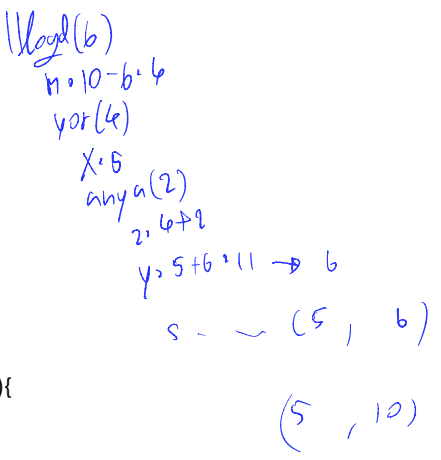 lloyd(6)
m = 10 - 6 = 4
yor(4)
x = 5
anya(2)
z = 4+2
y = 5+6 = 11 → 6
s - ~ (5, 6)
){
(5, 10)